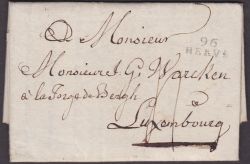 A Monsieur
96
HERVE
Monsieur J. G. Warcken
à la forge de Bergh
Luxembourg